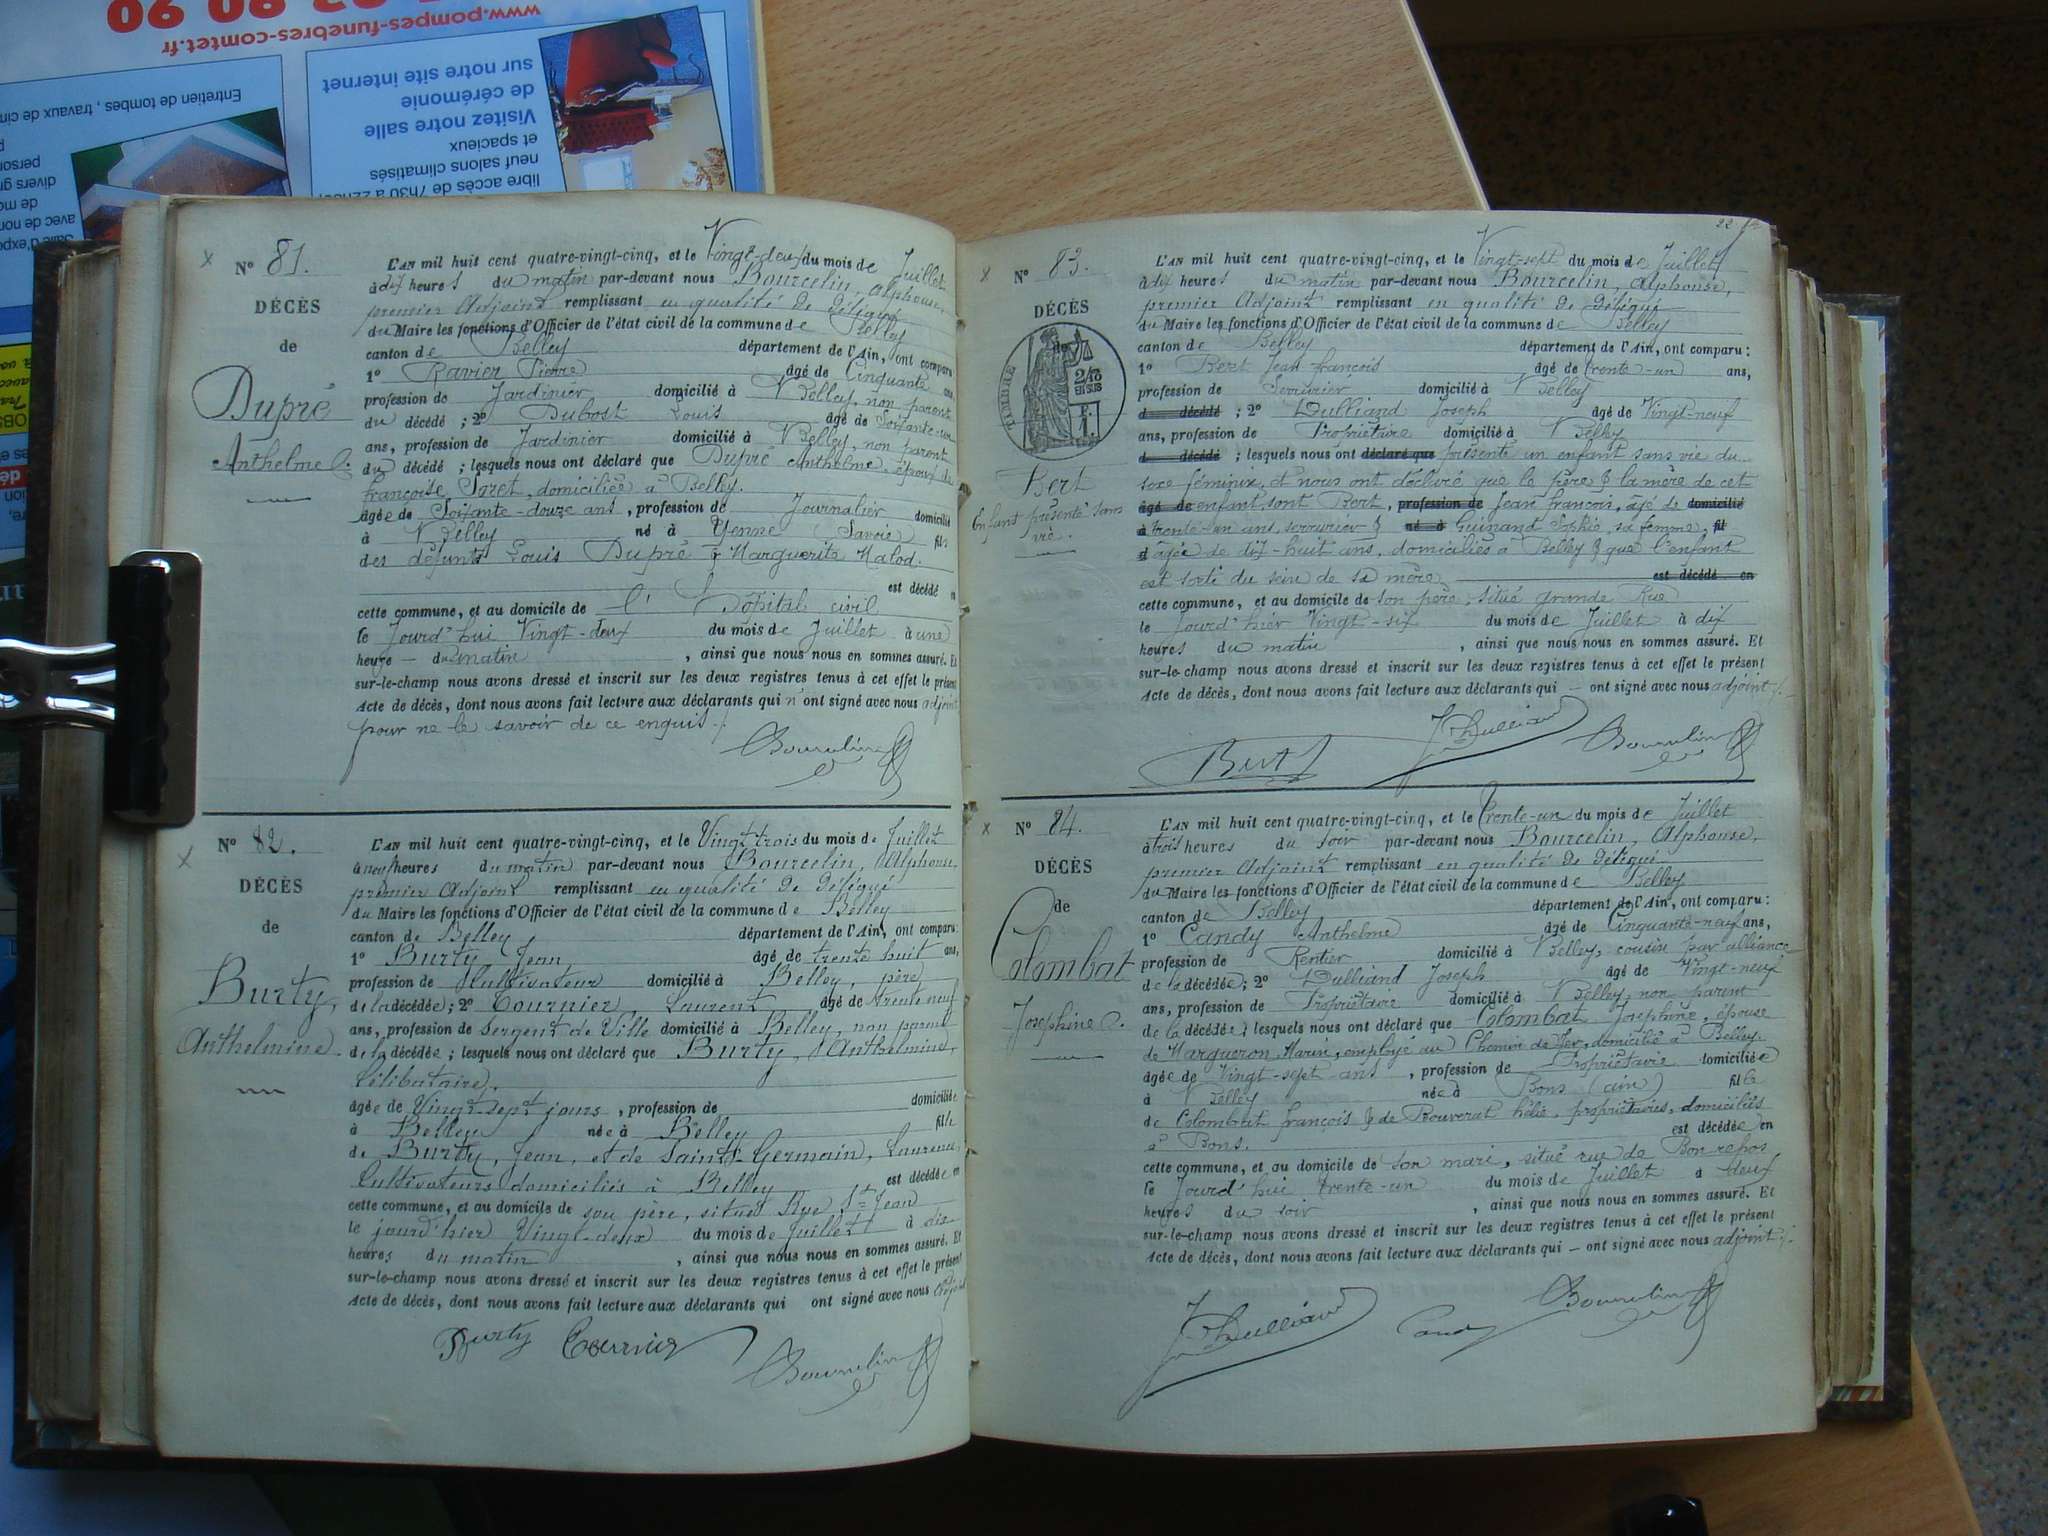 90
www.pompes-funebres-comtet.fr
Entretien de tombes, travaux de cim
libre accès de 7h30 à
neuf salons climatisés
et spacieux
Visitez notre salle
de cérémonie
sur notre site internet
N° 81.
DÉCÈS
de
Dupré
Anthelme
L'AN mil huit cent quatre-vingt-cinq, et le Vingt-deux du mois de Juillet
à dix heures du matin par-devant nous Bourcelin, Alphonse,
premier Adjoint remplissant en qualité de délégué
du Maire les fonctions d'Officier de l'état civil de la commune de Belley
canton de Belley département de l'Ain, ont comparu
1° Ravier Pierre âgé de Cinquante ans,
profession de Jardinier domicilié à Belley, non parent
du décédé ; 2° Dubost Louis âgé de Soixante-un
ans, profession de Jardinier domicilié à Belley, non parent
du décédé ; lesquels nous ont déclaré que Dupré Anthelme, époux de
françoise Soret, domiciliée à Belley.
âgé de Soixante-douze ans, profession de Journalier domicilié
à Belley né à Yenne (Savoie) fils
des défunts Louis Dupré & Marguerite Malod.
est décédé en
cette commune, et au domicile de l'Hôpital civil
le Jourd'hui Vingt-deux du mois de Juillet à une
heure du matin, ainsi que nous nous en sommes assuré. Et
sur-le-champ nous avons dressé et inscrit sur les deux registres tenus à cet effet le présent
Acte de décès, dont nous avons fait lecture aux déclarants qui n'ont signé avec nous adjoint
pour ne le savoir de ce enquis.
Bourcelin
N° 82.
DÉCÈS
de
Burty,
Anthelmine
L'AN mil huit cent quatre-vingt-cinq, et le Vingt trois du mois de Juillet
à neuf heures du matin par-devant nous Bourcelin, Alphonse,
premier Adjoint remplissant en qualité de délégué
du Maire les fonctions d'Officier de l'état civil de la commune de Belley
canton de Belley département de l'Ain, ont comparu:
1° Burty, Jean, âgé de trente huit ans,
profession de Cultivateur domicilié à Belley, père
de la décédée; 2° Tournier Laurent âgé de trente neuf
ans, profession de Sergent de Ville domicilié à Belley, non parent
de la décédée ; lesquels nous ont déclaré que Burty, Anthelmine,
Célibataire.
âgée de Vingt-sept jours, profession de domiciliée
à Belley née à Belley fille
de Burty, Jean, et de Saint-Germain, Laurence,
Cultivateurs domiciliés à Belley est décédée en
cette commune, et au domicile de son père, situé Rue St Jean
le jourd'hier Vingt-deux du mois de Juillet à dix
heures du matin, ainsi que nous nous en sommes assuré. Et
sur-le-champ nous avons dressé et inscrit sur les deux registres tenus à cet effet le présent
Acte de décès, dont nous avons fait lecture aux déclarants qui ont signé avec nous adjoint
Burty Tournier Bourcelin
22
N° 83.
DÉCÈS
de
TIMBRE
Bert
Enfant présenté sans
vie.
L'AN mil huit cent quatre-vingt-cinq, et le Vingt-sept du mois de Juillet
à dix heures du matin par-devant nous Bourcelin, Alphonse,
premier Adjoint remplissant en qualité de délégué
du Maire les fonctions d'Officier de l'état civil de la commune de Belley
canton de Belley département de l'Ain, ont comparu:
1° Bert Jean françois âgé de trente-un ans,
profession de Serrurier domicilié à Belley
d décédé ; 2° Dulliand Joseph âgé de Vingt-neuf
ans, profession de Propriétaire domicilié à Belley
d décédé ; lesquels nous ont déclaré que présenté un enfant sans vie du
sexe féminin, et nous ont déclaré que le père & la mère de cet
âgé de enfant sont Bert, profession de Jean françois, âgé de domicilié
à trente-un ans, serrurier & né à Guinand Sophie, sa femme, fil
d âgée de dix-huit ans, domiciliés à Belley & que l'enfant
est sorti du sein de sa mère est décédé en
cette commune, et au domicile de son père, situé grande Rue
le Jourd'hier Vingt-six du mois de Juillet à dix
heures du matin, ainsi que nous nous en sommes assuré. Et
sur-le-champ nous avons dressé et inscrit sur les deux registres tenus à cet effet le présent
Acte de décès, dont nous avons fait lecture aux déclarants qui – ont signé avec nous adjoint
Bert J Dulliand Bourcelin
N° 84.
DÉCÈS
de
Colombat
Josephine
L'AN mil huit cent quatre-vingt-cinq, et le trente-un du mois de Juillet
à trois heures du soir par-devant nous Bourcelin, Alphonse,
premier Adjoint remplissant en qualité de délégué
du Maire les fonctions d'Officier de l'état civil de la commune de Belley
canton de Belley département de l'Ain, ont comparu:
1° Candy Anthelme âgé de Cinquante-neuf ans,
profession de Rentier domicilié à Belley, cousin par alliance
de la décédée; 2° Dulliand Joseph âgé de Vingt-neuf
ans, profession de Propriétaire domicilié à Belley, non parent
de la décédée; lesquels nous ont déclaré que Colombat Josephine, épouse
de Margueron Marin, employé au Chemin de fer, domicilié à Belley.
âgée de Vingt-sept ans, profession de Propriétaire domiciliée
à Belley née à Bons (ain) fille
de Colombat françois & de Bouverat hélie, propriétaires, domiciliés
à Bons. est décédée en
cette commune, et au domicile de son mari, situé rue de Bon repos
le Jourd'hui trente-un du mois de Juillet à deux
heures du soir, ainsi que nous nous en sommes assuré. Et
sur-le-champ nous avons dressé et inscrit sur les deux registres tenus à cet effet le présent
Acte de décès, dont nous avons fait lecture aux déclarants qui – ont signé avec nous adjoint
J Dulliand Candy Bourcelin